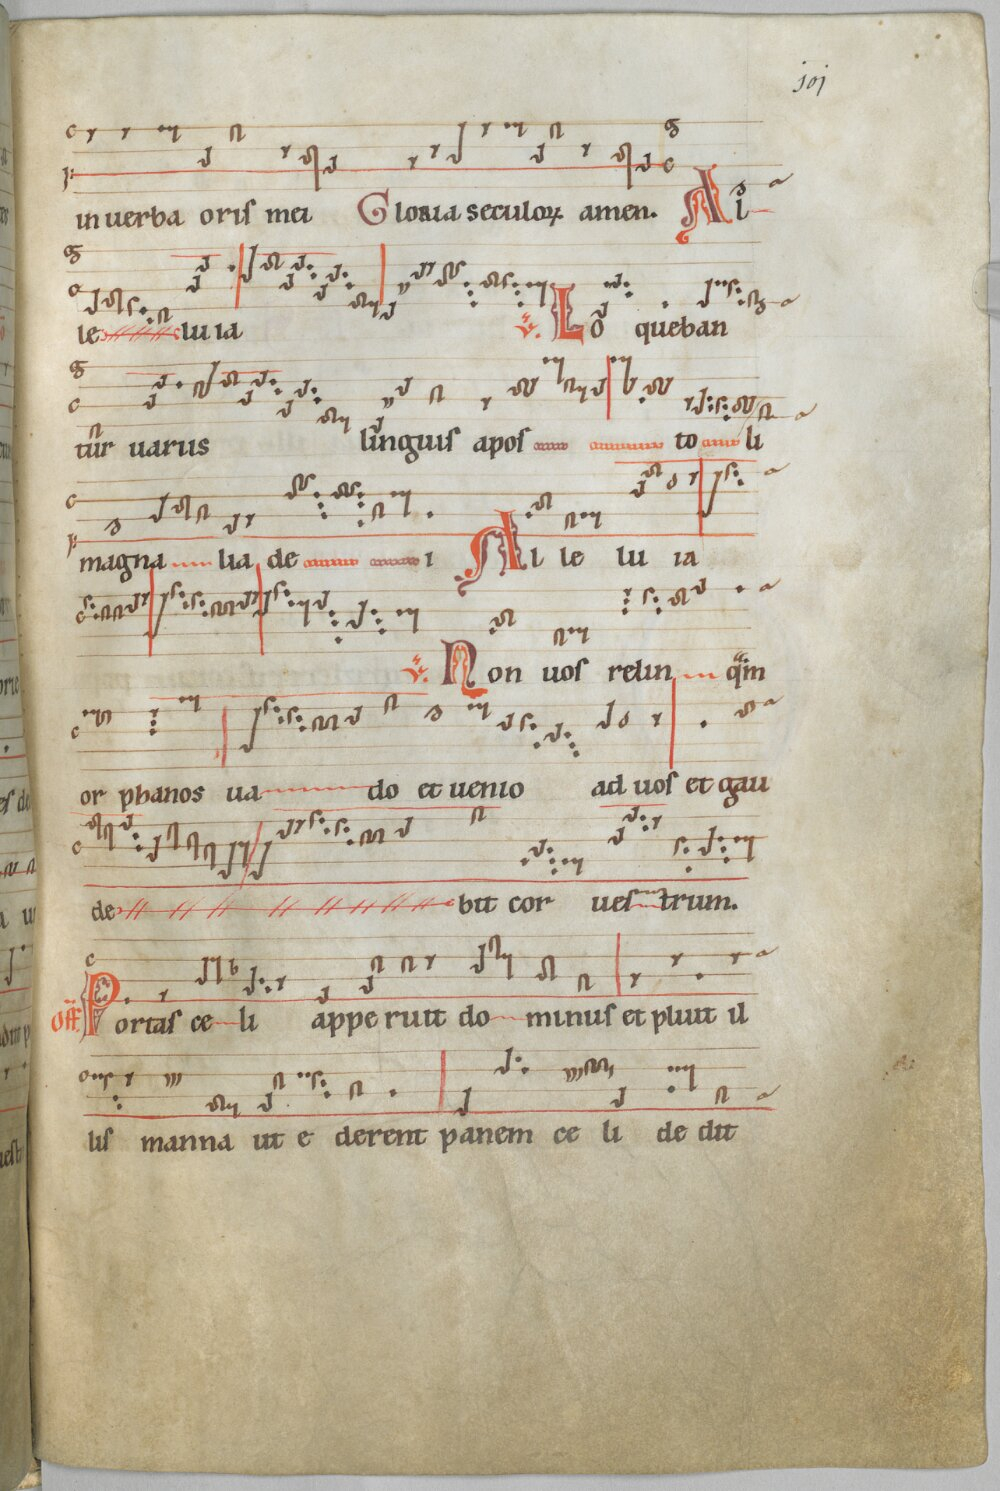 joj
in uerba oris mei Gloria seculoꝝ amen. Al
le lu ia ℣. Lo queban
tur uarus linguis apos to li
magna lia de i Al le lu ia
℣. Non uos relin qm
or phanos ua do et uenio ad uos et gau
de bit cor ues trum.
Off. Portas ce li appe ruit do minus et pluit il
lis manna ut e derent panem ce li de dit